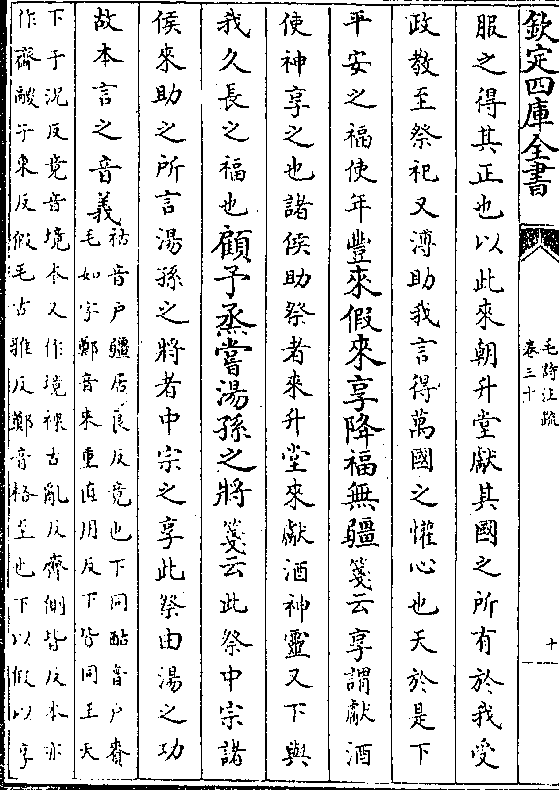 欽定四庫全書
毛詩注疏
卷三十
十
服之得其正也以此來朝升堂獻其國之所有於我受
政教至祭祀又溥助我言得萬國之懽心也天於是下
平安之福使年豐來假來享降福無疆箋云享謂獻酒
使神享之也諸侯助祭者來升堂來獻酒神靈又下與
我久長之福也顧予烝嘗湯孫之將箋云此祭中宗諸
侯來助之所言湯孫之將者中宗之享此祭由湯之功
故本言之音義
祜音户疆居良反竟也下同酤音户賚
毛如字鄭音來重直用反下皆同王天
下于況反竟音境本又作境祼古亂反齊側皆反本亦
作齋鬷子東反假毛古雅反鄭音格至也下以假以享